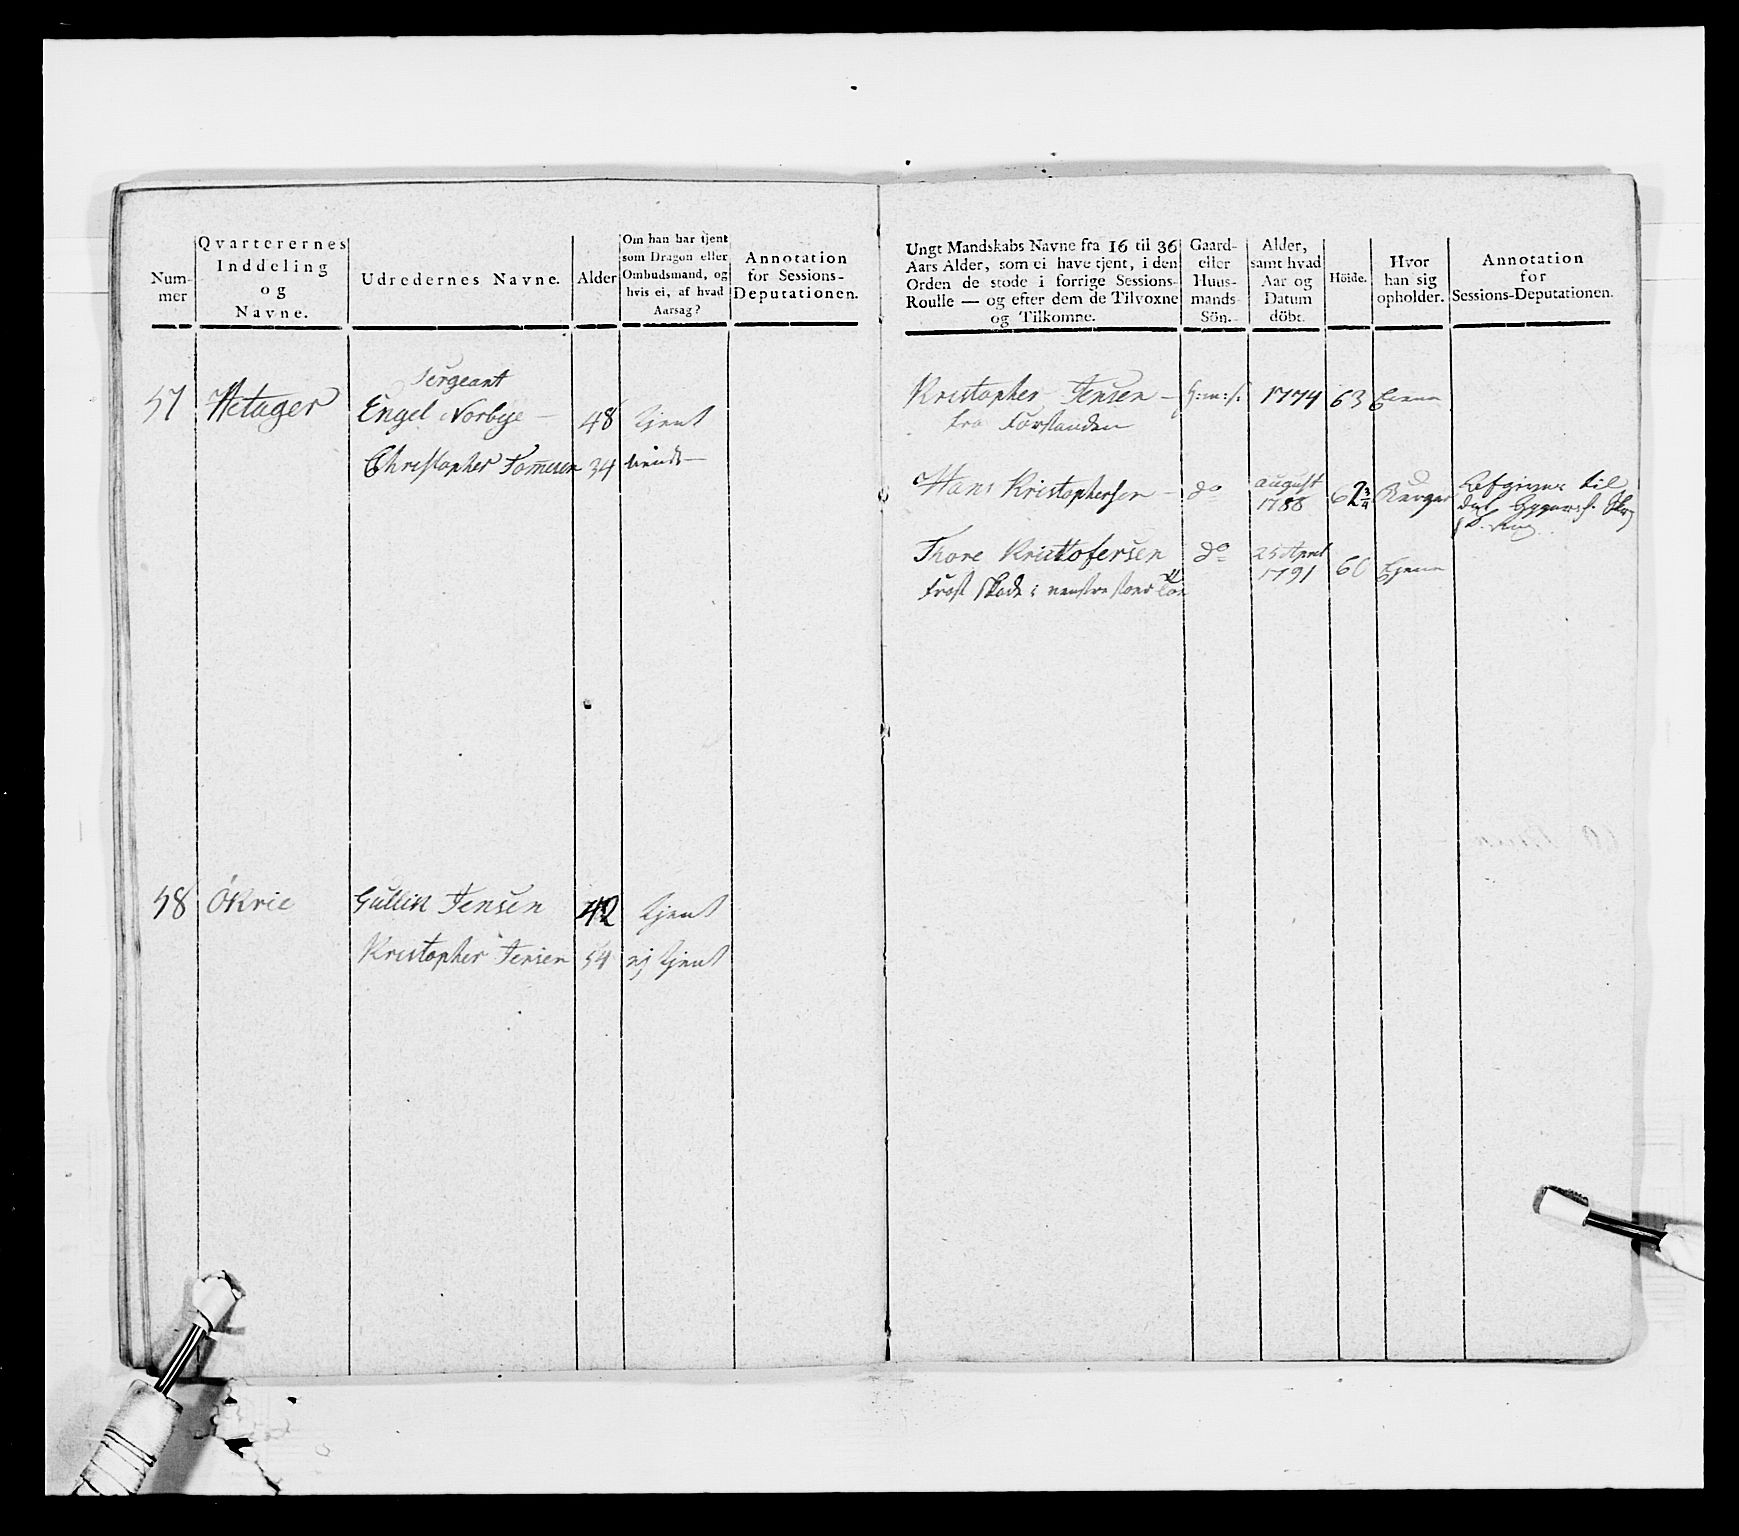 Nummer
Qvarterernes
Inddeling
og
Navne.
Udredernes Navne.
Alder
Om han har tjent
som Dragon eller
Ombudsmand, og
hvis ei, af hvad
Aarsag?
Annotation
for Sessions-
Deputationen.
57
Engel Norbye —
Sergeant
48
tjent
Christopher
34
58
Økrie
Gullik Jensen
42
tjent
Kristopher Jensen
54
ej tjent
Ungt Mandskabs Navne fra 16 til 36
Aars Alder, som ei have tjent, i den
Orden de stode i forrige Sessions-
Roulle — og efter dem de Tilvoxne
og Tilkomne.
Gaard-
eller
Huus-
mands-
Sön.
Alder,
samt hvad
Aar og
Datum
döbt.
Höide.
Hvor
han sig
opholder.
Annotation
for
Sessions-Deputationen.
Kristopher Jensen —
h:m:s.
1774
63
fra Forstanden
Hans Kristophersen —
do
august
1788
62 3/4
Afgiven til
Thore Kristofersen
do
25 April
1791
60
Frost Skade i venstre stoer Toe